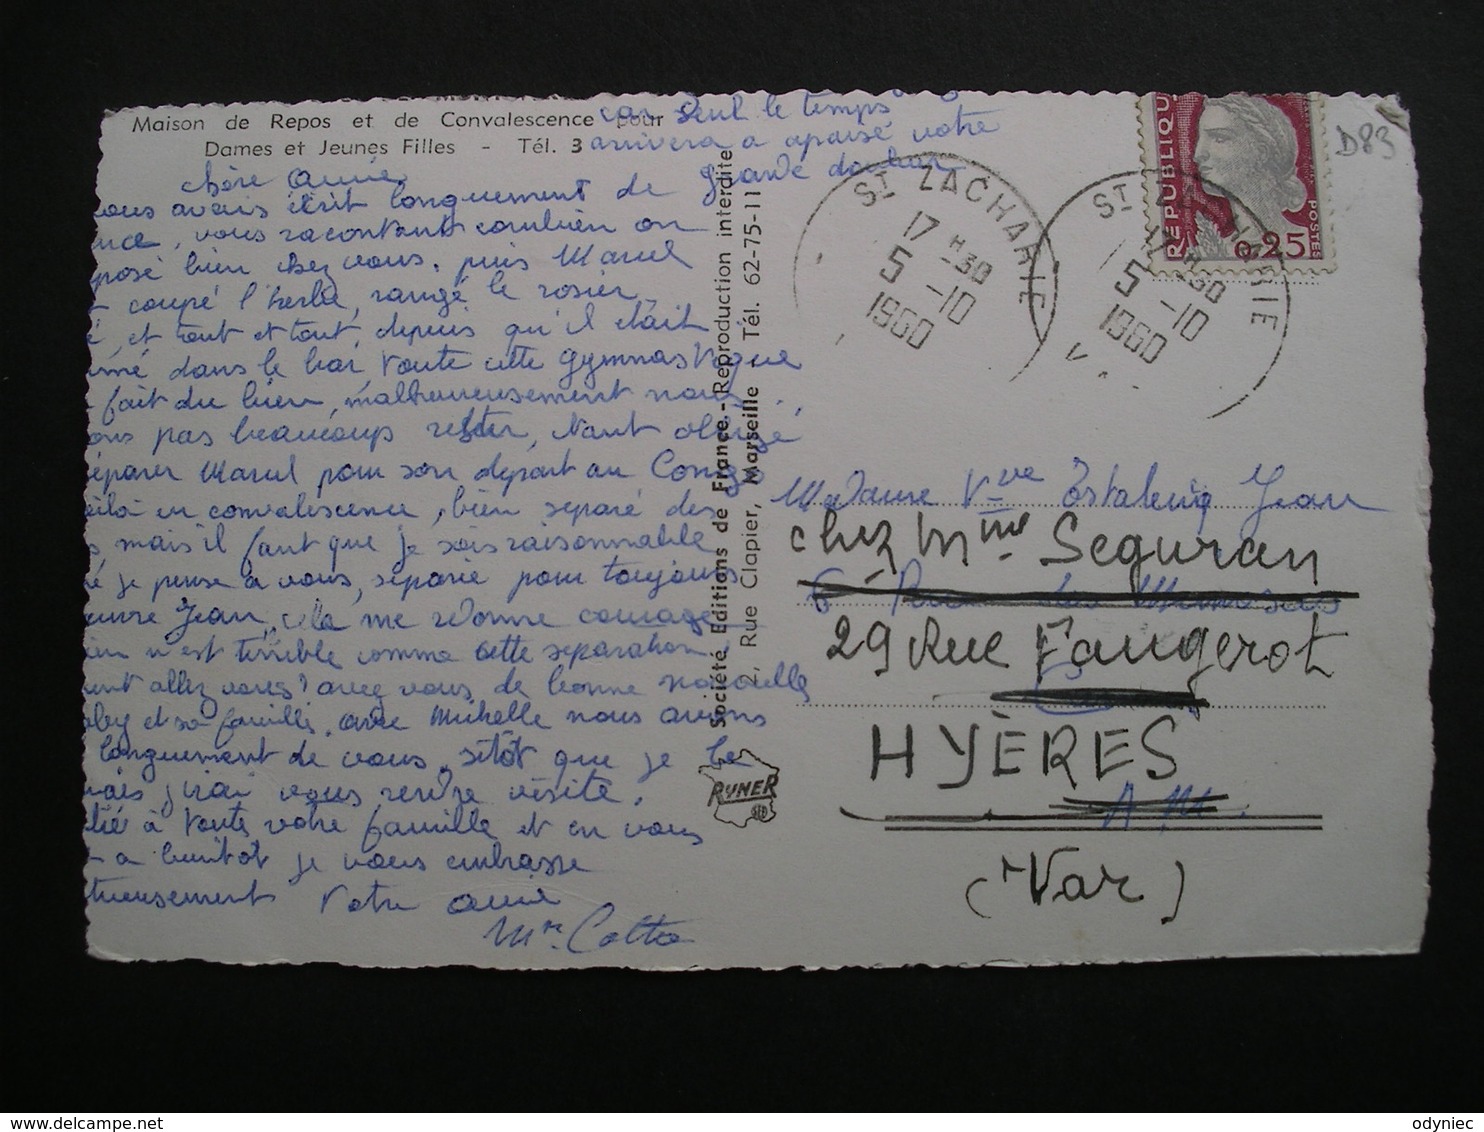 Maison de Repos et de Convalescence pour
Dames et Jeunes Filles - Tél. 3
car seul le temps
arrivera a apaisé votre
grande douleur
chère amie,
vous avais écrit longuement de
nce, vous racontant combien on
posé bien chez vous, puis Marcel
coupé l'herbe, rangé le rosier
é, et tout et tout, depuis qu'il était
mé dans le bar toute cette gymnastique
fait du bien, malheureusement nous
ons pas beaucoup rester, étant obligé
éparer Marcel pour son départ au Congo
voilà en convalescence, bien séparé des
s mais il faut que je sois raisonnable
é je pense à vous, séparée pour toujours
auvre Jean, cela me redonne courage
ien n'est terrible comme cette séparation,
ent allez vous? avez vous de bonne nouvelle
by et sa famille, avec Michelle nous avons
longuement de vous, sitôt que je le
ais j'irai vous rendre visite,
tié à toute votre famille et en vous
a bientôt je vous embrasse
tueusement Votre amie
Mme Cotta
Société Editions de France - Reproduction interdite
2, Rue Clapier, Marseille - Tél. 62-75-11
RYNER
ST ZACHARIE
17 H30
5 -10
1960
ST ZACHARIE
17 H30
5 -10
1960
V
REPUBLIQUE
0,25
POSTES
D83
Madame Vve Estableig Jean
chez Mme Seguran
6 Rue des Mimosas
29 Rue Faugerot
HYÈRES
A.M.
(Var)
odyniec
http://odyniec.delcampe.net